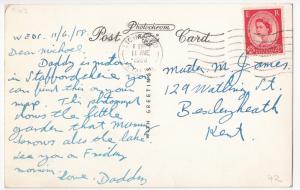 Photochrom
Post Card
11/6/58.
Dear Michael.
Daddy is
in Staffordshire you
can find this on your
map. This photograph
shows the little
garden that Mummy
knows also the lake
see you on Friday
morning
Love. Daddy
WITH GREETINGS
Master M James
129 Watling St.
Bexleyheath
Kent.
92